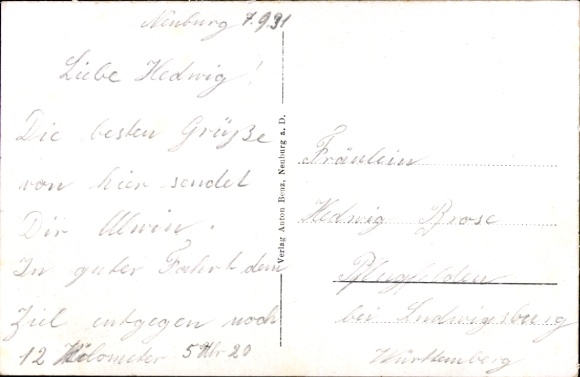 Neuburg 7.9.31
Liebe Hedwig!
Die besten Grüße
von hier sendet
Dir Alwin.
In guter Fahrt dem
Ziel entgegen noch
12 Kilometer 5 Uhr 20
Verlag Anton Benz, Neuburg a. D.
Fräulein
Hedwig Brose
Pflugfelden
bei Ludwigsburg
Württemberg